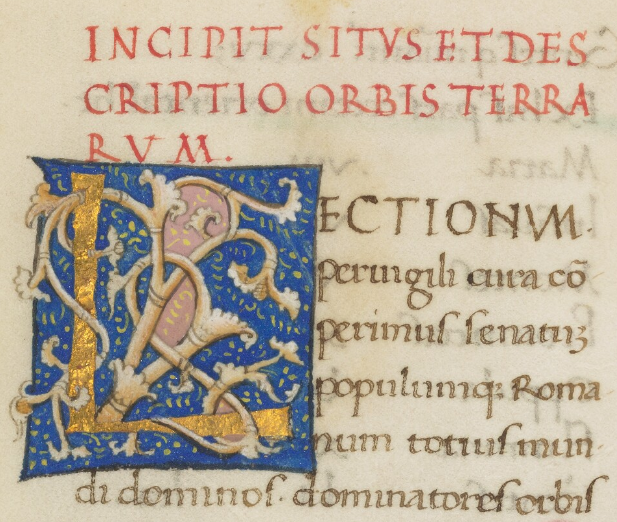 INCIPIT SITVS ET DES
CRIPTIO ORBIS TERRA
RVM.
LECTIONVM.
peruigili cura cō
perimus senatūꝫ
populumq; Roma
num totius mun
di dominos. dominatores orbis